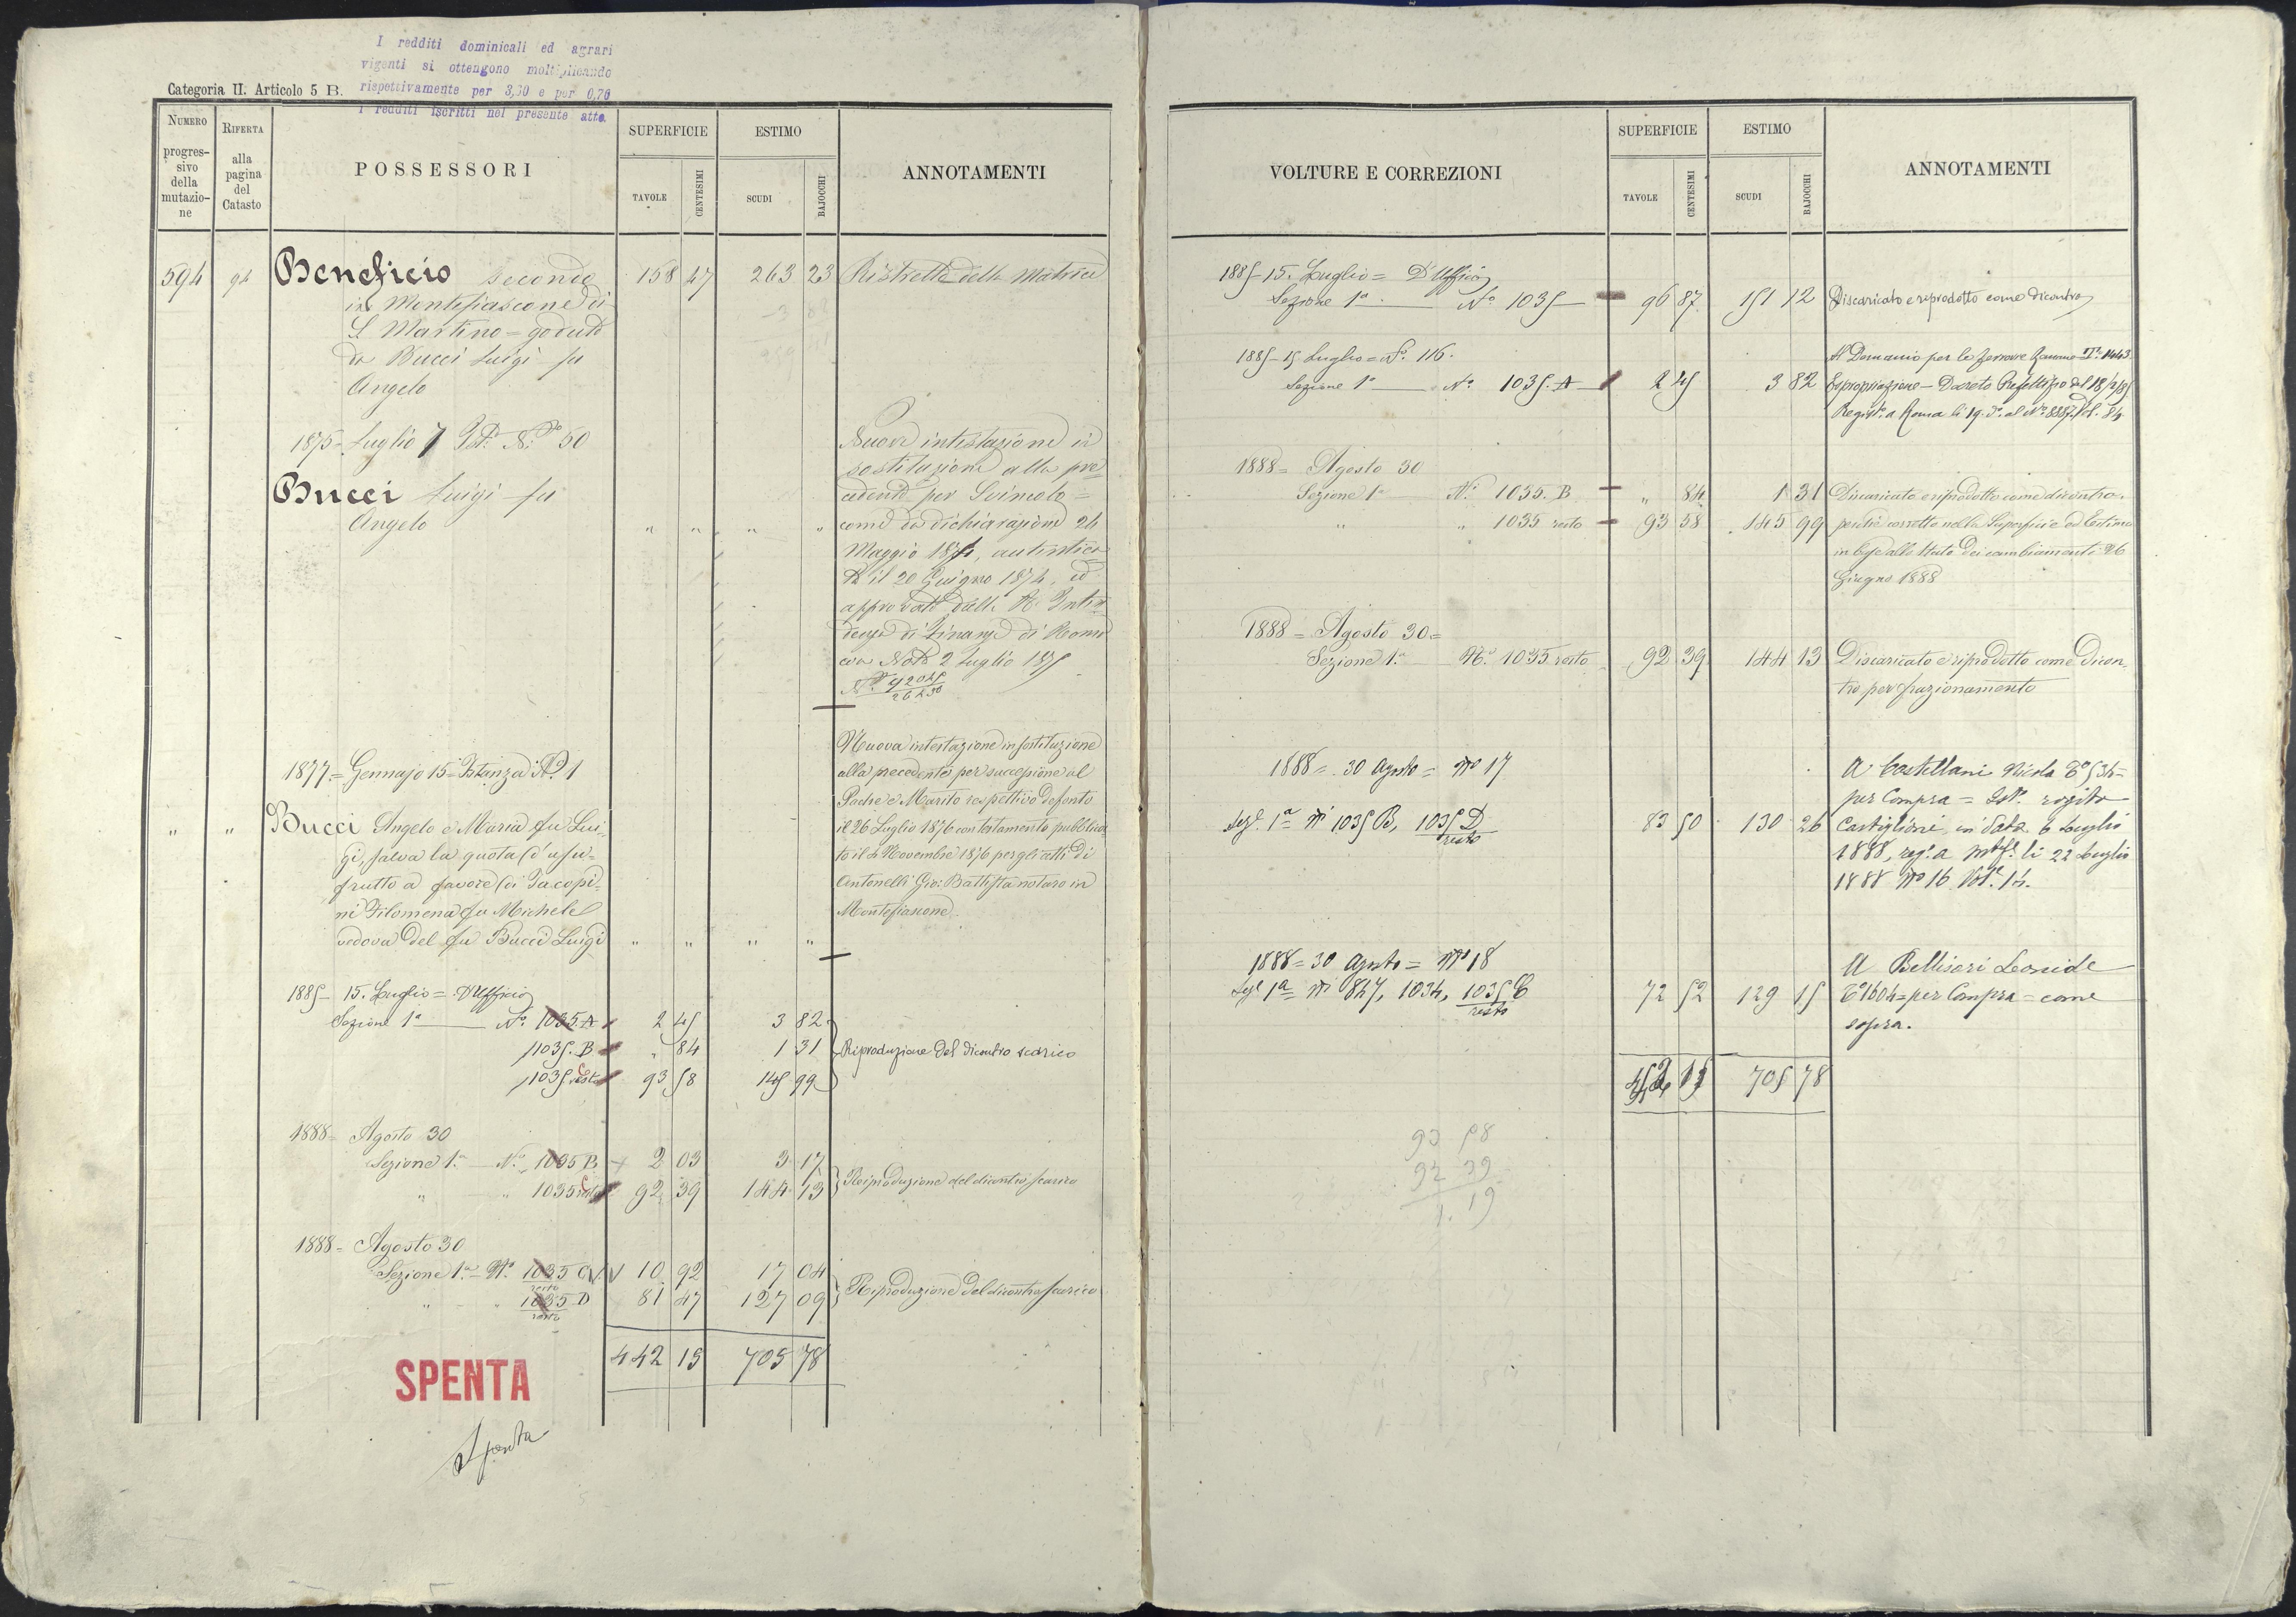 I redditi dominicali ed agrari
vigenti si ottengono moltiplicando
rispettivamente per 3,30 e per 0,70
i redditi iscritti nel presente atto.
Categoria II. Articolo 5 B.
NUMERO progres- sivo della mutazio- ne
RIFERTA alla pagina del Catasto
POSSESSORI
SUPERFICIE
TAVOLE
CENTESIMI
ESTIMO
SCUDI
BAJOCCHI
ANNOTAMENTI
594 94 Beneficio secondo 158 47 263 23 Ristretto della Matrice
in Montefiascone di
S. Martino = goduto
da Bucci Luigi fu
Angelo
1875 - Luglio 7 Ist. N.º 50
Bucci Luigi fu
Angelo " " " "
Nuova intestazione in
sostituzione alla pre
cedente per Svincolo =
come da dichiarazione 26
Maggio 1874, autentica
ta il 20 Giugno 1874, ed
approvata dalla R. Inten
denza di Finanza di Roma
con Nota 2 Luglio 1875
1877 = Gennajo 15 = Istanza N.º 1
" " Bucci Angelo e Maria fu Lui-
gi, salva la quota d'usu-
frutto a favore di Jacopi-
ni Filomena fu Michele
vedova del fu Bucci Luigi " " " "
Nuova intestazione in sostituzione
alla precedente per successione al
Padre e Marito respettivo defonto
il 26 Luglio 1876 con testamento pubblica
to il 2 Novembre 1876 per gli atti di
Antonelli Gio: Battista notaro in
Montefiascone.
1885 - 15. Luglio = D'Ufficio
Sezione 1ª N.º 1035. A 2 45 3 82
1035. B " 84 1 31 Riproduzione del dicontro scarico
1035 resto 93 58 145 99
1888 = Agosto 30
Sezione 1.ª N.º 1035 B 2 03 3 17
" " 1035 resto 92 39 144 13 Riproduzione del dicontro scarico
1888 = Agosto 30
Sezione 1.ª = N.º 1035 C 10 92 17 04
resto
" " 1035 D 81 47 127 09 Riproduzione del dicontro scarico
resto
442 15 705 78
SPENTA
Spenta
VOLTURE E CORREZIONI
SUPERFICIE
TAVOLE
CENTESIMI
ESTIMO
SCUDI
BAJOCCHI
ANNOTAMENTI
1885 - 15. Luglio = D'Ufficio
Sezione 1ª N.º 1035 96 87 151 12 Discaricato e riprodotto come dicontro
1885 - 15 Luglio = N.º 116.
Sezione 1ª N.º 1035. A 2 45 3 82
Al Demanio per le ferrovie Romane Tº 1443.
Espropriazione - Decreto Prefettizio del 18/2/85
Regist.º a Roma li 19 dº al Nº 8887 Vol. 84
1888 = Agosto 30
Sezione 1ª N.º 1035. B " 84 1 31 Discaricato e riprodotto come dicontro
" " 1035 resto 93 58 145 99 perchè corretto nella Superficie ed Estimo
in base allo Stato dei cambiamenti 26
Giugno 1888
1888 = Agosto 30 =
Sezione 1.ª N.º 1035 resto 92 39 144 13 Discaricato e riprodotto come dicon-
tro per frazionamento
1888 = 30 Agosto = Nº 17
Sezº 1ª Nº 1035 B, 1035 D 83 50 130 26
resto
A Castellani Nicola Tº 534 =
per Compra = Ist.º rogito
Castiglioni in data 6 Luglio
1888, reg.º a Mtfº li 22 Luglio
1888 Nº 16 Vol. 14.
1888 = 30 Agosto = Nº 18
Sezº 1ª Nº 847, 1034, 1035 C 72 52 129 15
resto
A Bellisari Leonide
Tº 1604 = per Compra = come
sopra.
442 15 705 78
93 58
92 39
1. 19